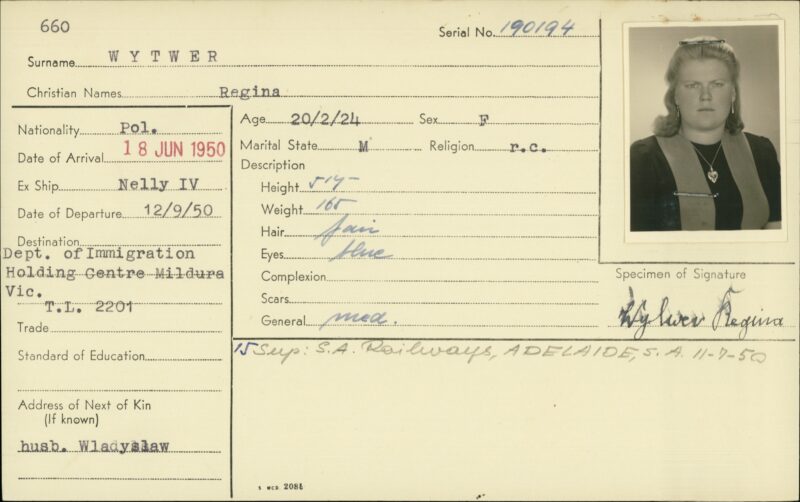 660
Serial No. 190194
Surname WYTWER
Christian Names Regina
Nationality Pol.
Date of Arrival 18 JUN 1950
Ex Ship Nelly IV
Date of Departure 12/9/50
Destination
Dept. of Immigration
Holding Centre Mildura
Vic.
T.L. 2201
Trade
Standard of Education
Address of Next of Kin
(If known)
husb. Wladyslaw
Age 20/2/24 Sex F
Marital State M Religion r.c.
Description
Height
Weight 165
Hair fair
Eyes blue
Complexion
Scars
General med.
Specimen of Signature
Wytwer Regina
S.A. Railways, ADELAIDE, S.A. 11-7-50
2086